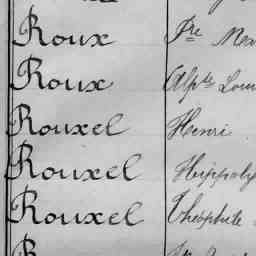 Roux Pre
Roux Alpse Loui
Rouxel Henri
Rouxel Hippoly
Rouxel Théophile
R